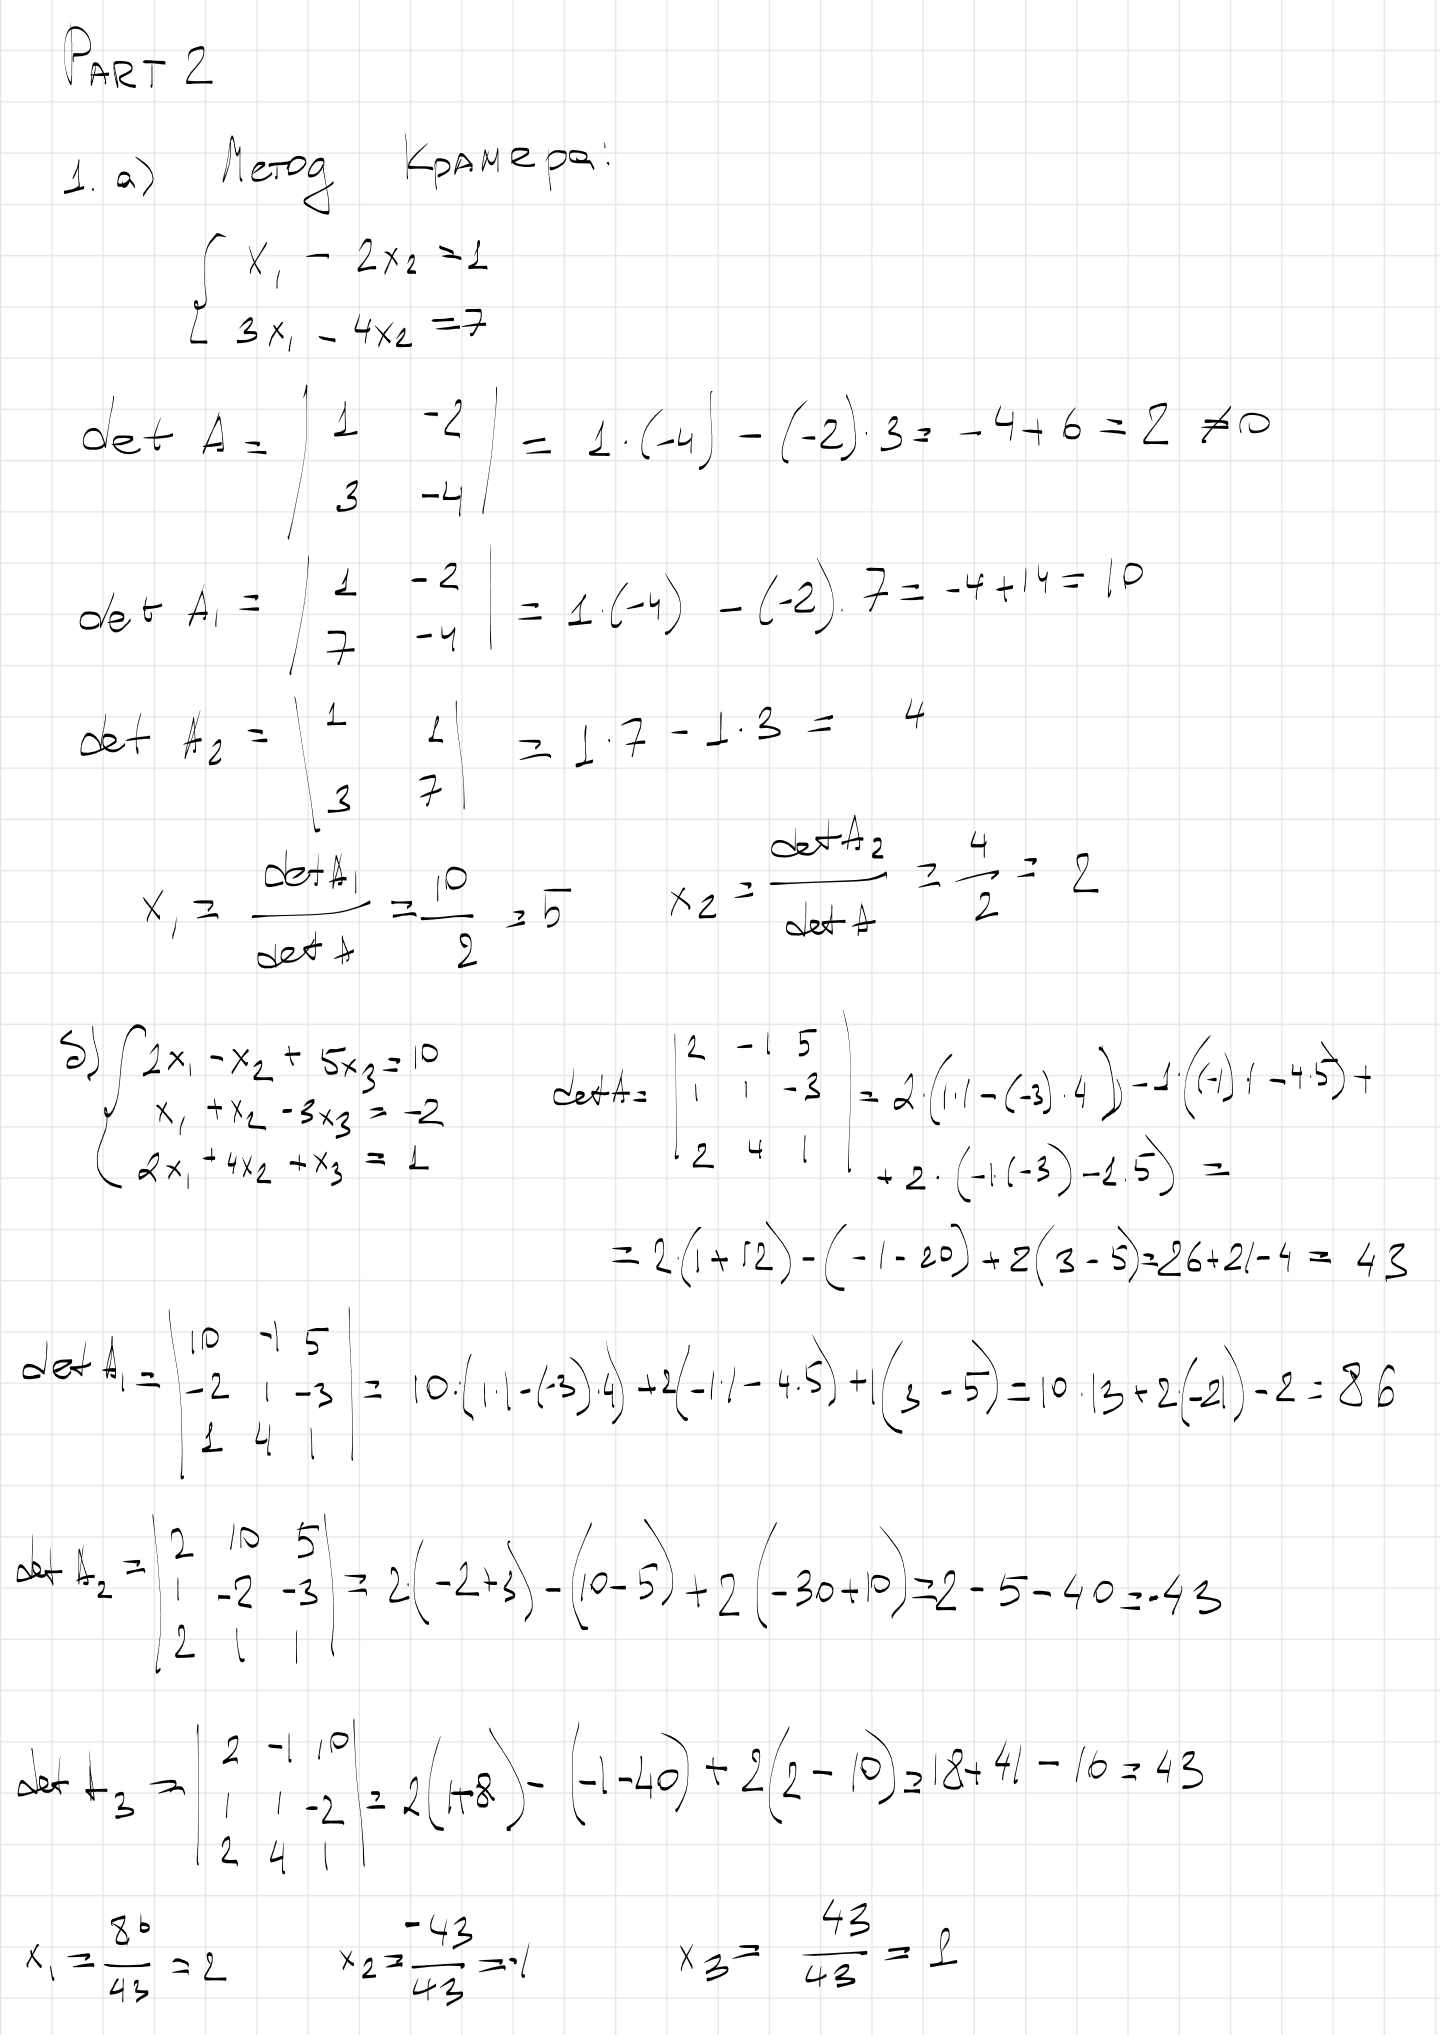 PART 2
1. a) Метод Крамера:
{ x₁ - 2x₂ = 1
3x₁ - 4x₂ = 7
det A = | 1 -2 | = 1·(-4) - (-2)·3 = -4+6 = 2 ≠0
3 -4
det A₁ = | 1 -2 | = 1·(-4) - (-2)·7 = -4+14 = 10
7 -4
det A₂ = | 1 1 | = 1·7 - 1·3 = 4
3 7
x₁ = det A₁ / det A = 10/2 = 5 x₂ = det A₂ / det A = 4/2 = 2
б) { 2x₁ - x₂ + 5x₃ = 10
x₁ + x₂ - 3x₃ = -2
2x₁ + 4x₂ + x₃ = 1
det A = | 2 -1 5 | = 2·(1·1 - (-3)·4) - 1·((-1)·1 - 4·5) +
1 1 -3
2 4 1
+ 2·(-1·(-3) - 1·5) =
= 2·(1+12) - (-1-20) + 2(3-5) = 26+21-4 = 43
det A₁ = | 10 -1 5 | = 10·(1·1-(-3)·4) + 2(-1·1 - 4·5) + 1(3-5) = 10·13 + 2·(-21) - 2 = 86
-2 1 -3
1 4 1
det A₂ = | 2 10 5 | = 2·(-2+3) - (10-5) + 2(-30+10) = 2 - 5 - 40 = -43
1 -2 -3
2 1 1
det A₃ = | 2 -1 10 | = 2(1+8) - (-1-40) + 2(2-10) = 18+41-16 = 43
1 1 -2
2 4 1
x₁ = 86/43 = 2 x₂ = -43/43 = -1 x₃ = 43/43 = 1